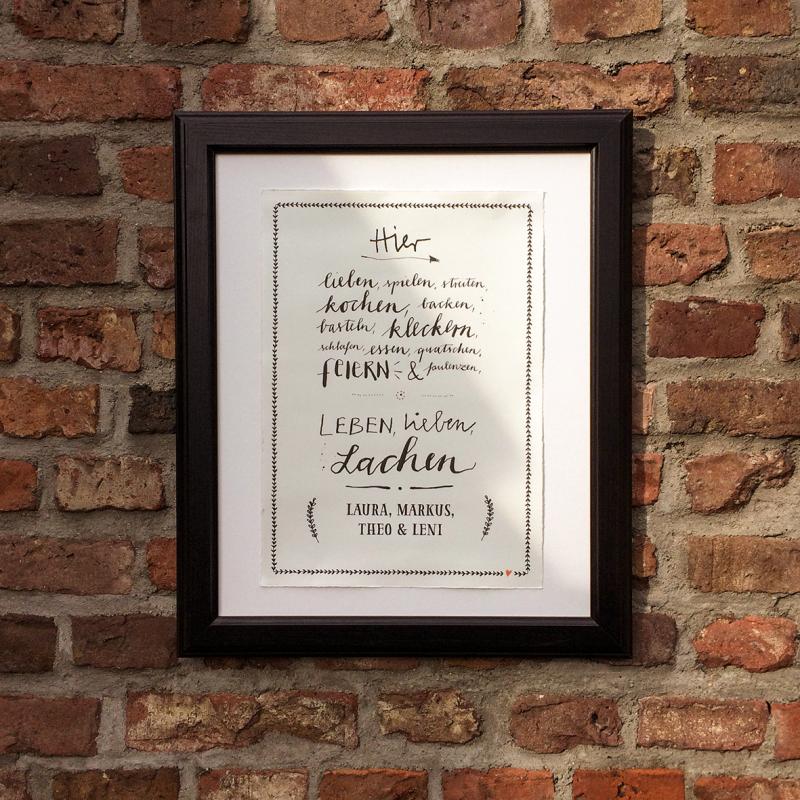 Hier
lieben, spielen, streiten,
kochen, backen,
basteln, kleckern,
schlafen, essen, quatschen,
FEIERN & faulenzen,
LEBEN, lieben,
Lachen
LAURA, MARKUS,
THEO & LENI